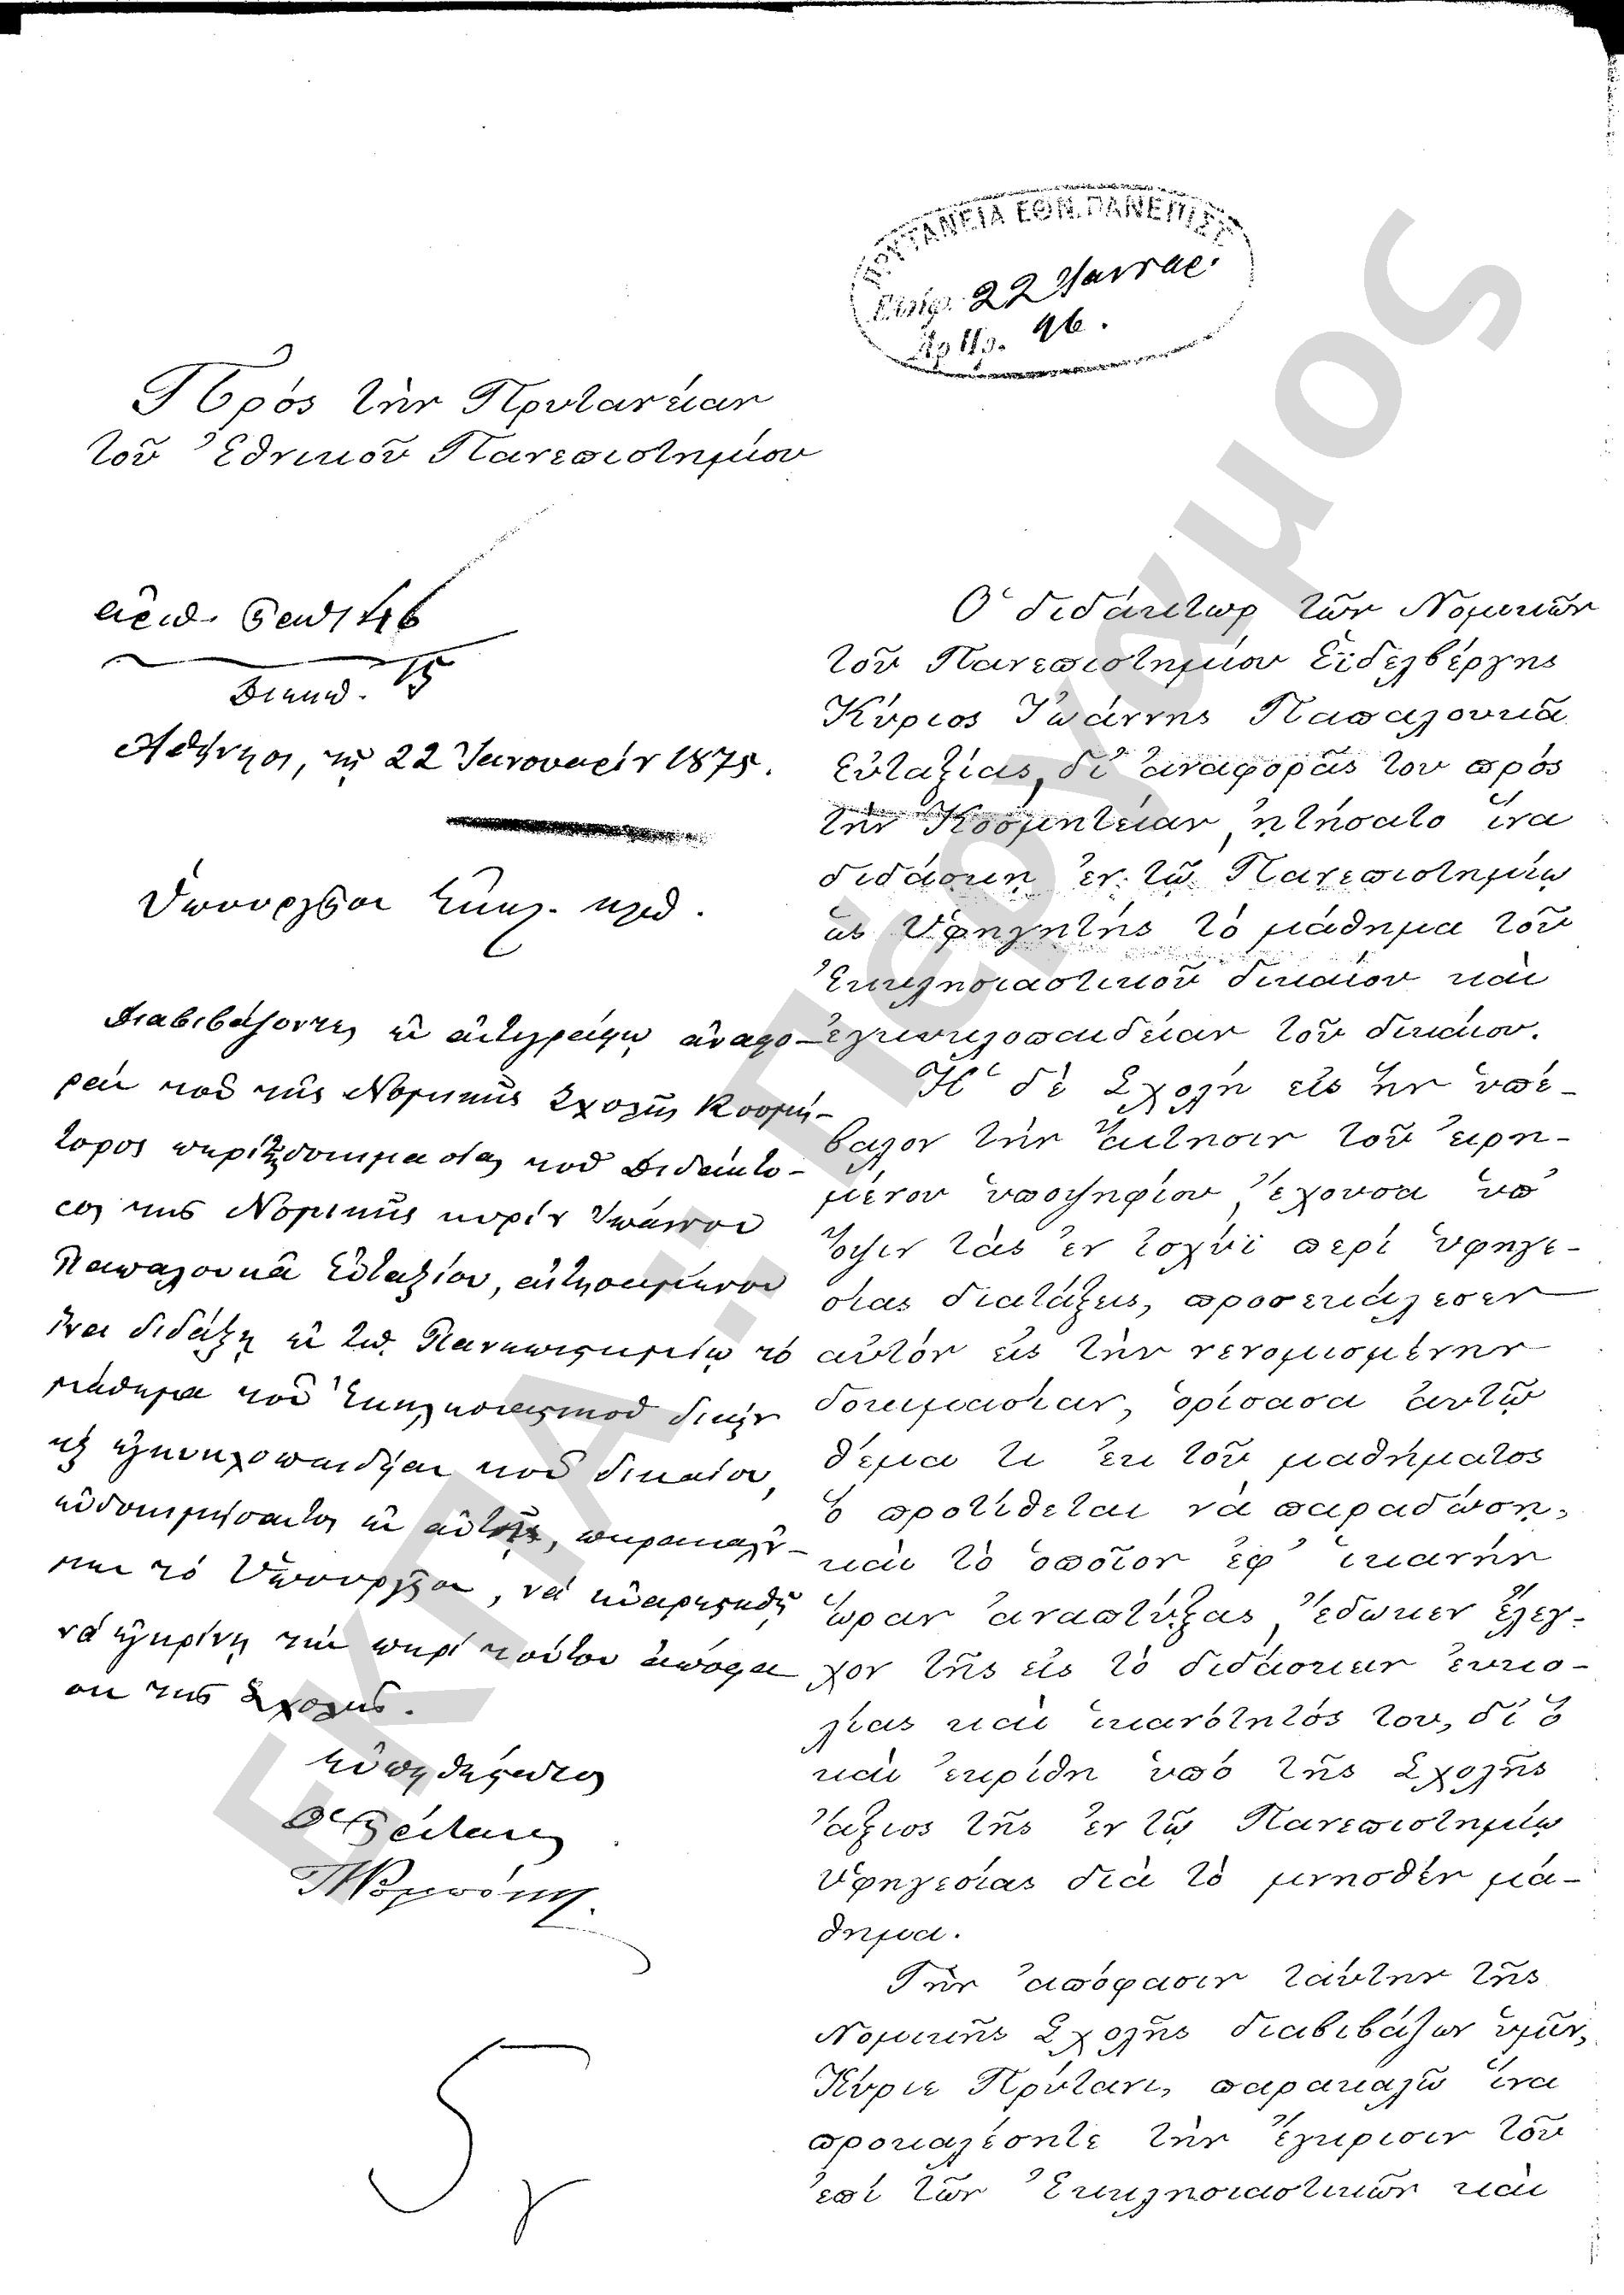 ΠΡΥΤΑΝΕΙΑ ΕΘΝ. ΠΑΝΕΠΙΣΤ
22 Ἰαννουαρ.
Ἀρ. Πρ. 96.
Πρός τὴν Πρυτανείαν
τοῦ Ἐθνικοῦ Πανεπιστημίου
ἀριθ. 46
Διεκπ. 15
Ἀθήνησι, τῇ 22 Ἰανουαρίου 1875.
Ὑπουργεῖον Ἐκκλ. κλπ.
Διαβιβάζοντες ἐν ἀντιγράφῳ ἀναφο-
ρὰν τοῦ τῆς Νομικῆς Σχολῆς Κοσμή-
τορος περὶ δοκιμασίας τοῦ διδάκτο-
ρος τῆς Νομικῆς κυρίου Ἰωάννου
Παπαλουκᾶ Εὐταξίου, αἰτησαμένου
ἵνα διδάξῃ ἐν τῷ Πανεπιστημίῳ τὸ
μάθημα τοῦ Ἐκκλησιαστικοῦ δικαίου
καὶ ἐγκυκλοπαιδείαν τοῦ δικαίου,
εὐδοκιμήσαντος ἐν αὐτῇ, παρακαλοῦ-
μεν τὸ Ὑπουργεῖον, νὰ εὐαρεστηθῇ
νὰ ἐγκρίνῃ τὴν περὶ τούτου ἀπόφα
σιν τῆς Σχολῆς.
Εὐπειθέστατος
Ὁ Πρύτανις
Ὁ διδάκτωρ τῶν Νομικῶν
τοῦ Πανεπιστημίου Εἰδελβέργης
Κύριος Ἰωάννης Παπαλουκᾶ
Εὐταξίας, δι' ἀναφορᾶς του πρός
τὴν Κοσμητείαν, ᾐτήσατο ἵνα
διδάσκῃ ἐν τῷ Πανεπιστημίῳ
ὡς Ὑφηγητής τὸ μάθημα τοῦ
Ἐκκλησιαστικοῦ δικαίου καὶ
ἐγκυκλοπαιδείαν τοῦ δικαίου.
Ἡ δὲ Σχολὴ εἰς ἣν ὑπέ-
βαλον τὴν αἴτησιν τοῦ εἰρη-
μένου ὑποψηφίου, ἔχουσα ὑπ'
ὄψιν τὰς ἐν ἰσχύϊ περὶ ὑφηγε-
σίας διατάξεις, προσεκάλεσεν
αὐτόν εἰς τὴν νενομισμένην
δοκιμασίαν, ὁρίσασα αὐτῷ
θέμα τι ἐκ τοῦ μαθήματος
ὃ προτίθεται νὰ παραδώσῃ,
καὶ τὸ ὁποῖον ἐφ' ἱκανὴν
ὥραν ἀναπτύξας, ἔδωκεν ἔλεγ-
χον τῆς εἰς τὸ διδάσκειν εὐκο-
λίας καὶ ἱκανότητός του, δι' ὃ
καὶ ἐκρίθη ὑπό τῆς Σχολῆς
ἄξιος τῆς ἐν τῷ Πανεπιστημίῳ
Ὑφηγεσίας διὰ τὸ μνησθὲν μά-
θημα.
Τὴν ἀπόφασιν ταύτην τῆς
Νομικῆς Σχολῆς διαβιβάζων ὑμῖν,
Κύριε Πρύτανι, παρακαλῶ ἵνα
προκαλέσητε τὴν ἔγκρισιν τοῦ
ἐπὶ τῶν Ἐκκλησιαστικῶν καὶ